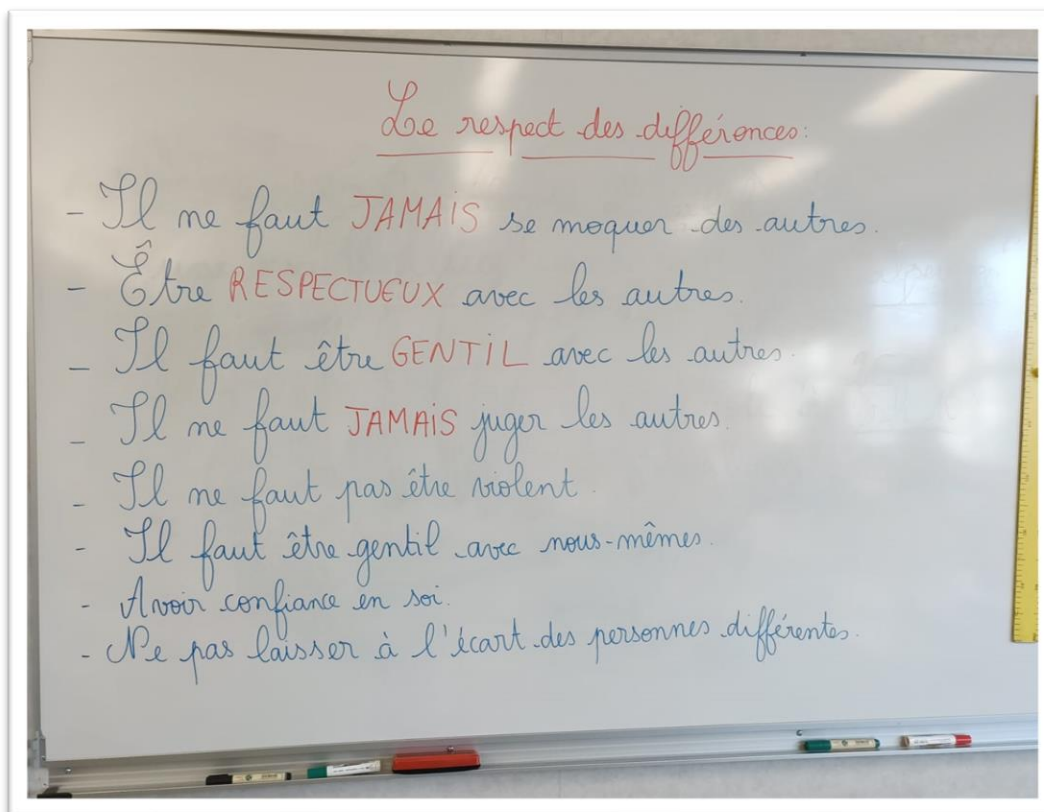 Le respect des différences:
- Il ne faut JAMAiS se moquer des autres.
- Être RESPECTUEUX avec les autres.
- Il faut être GENTiL avec les autres.
- Il ne faut JAMAiS juger les autres.
- Il ne faut pas être violent.
- Il faut être gentil avec nous-mêmes.
- Avoir confiance en soi.
- Ne pas laisser à l'écart des personnes différentes.